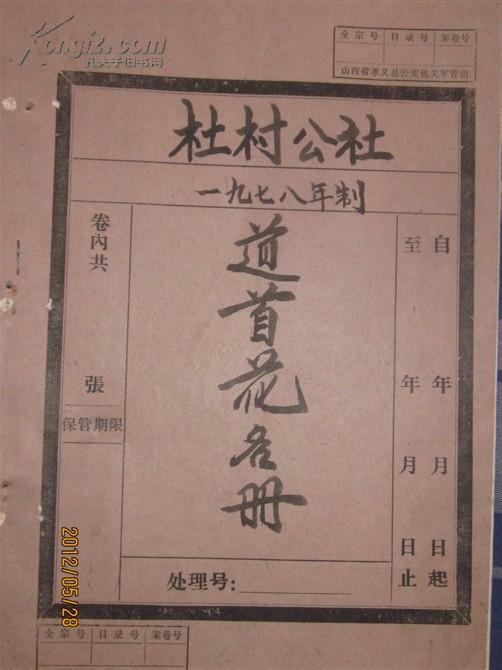 Kongfz.com
孔夫子旧书网
全宗号 目录号 案卷号
山西省孝义县公安机关军管组
杜村公社
一九七八年制
自 年 月 日起
至 年 月 日止
道首花名册
卷內共 張
保管期限
处理号：
2012/05/28
全宗号 目录号 案卷号